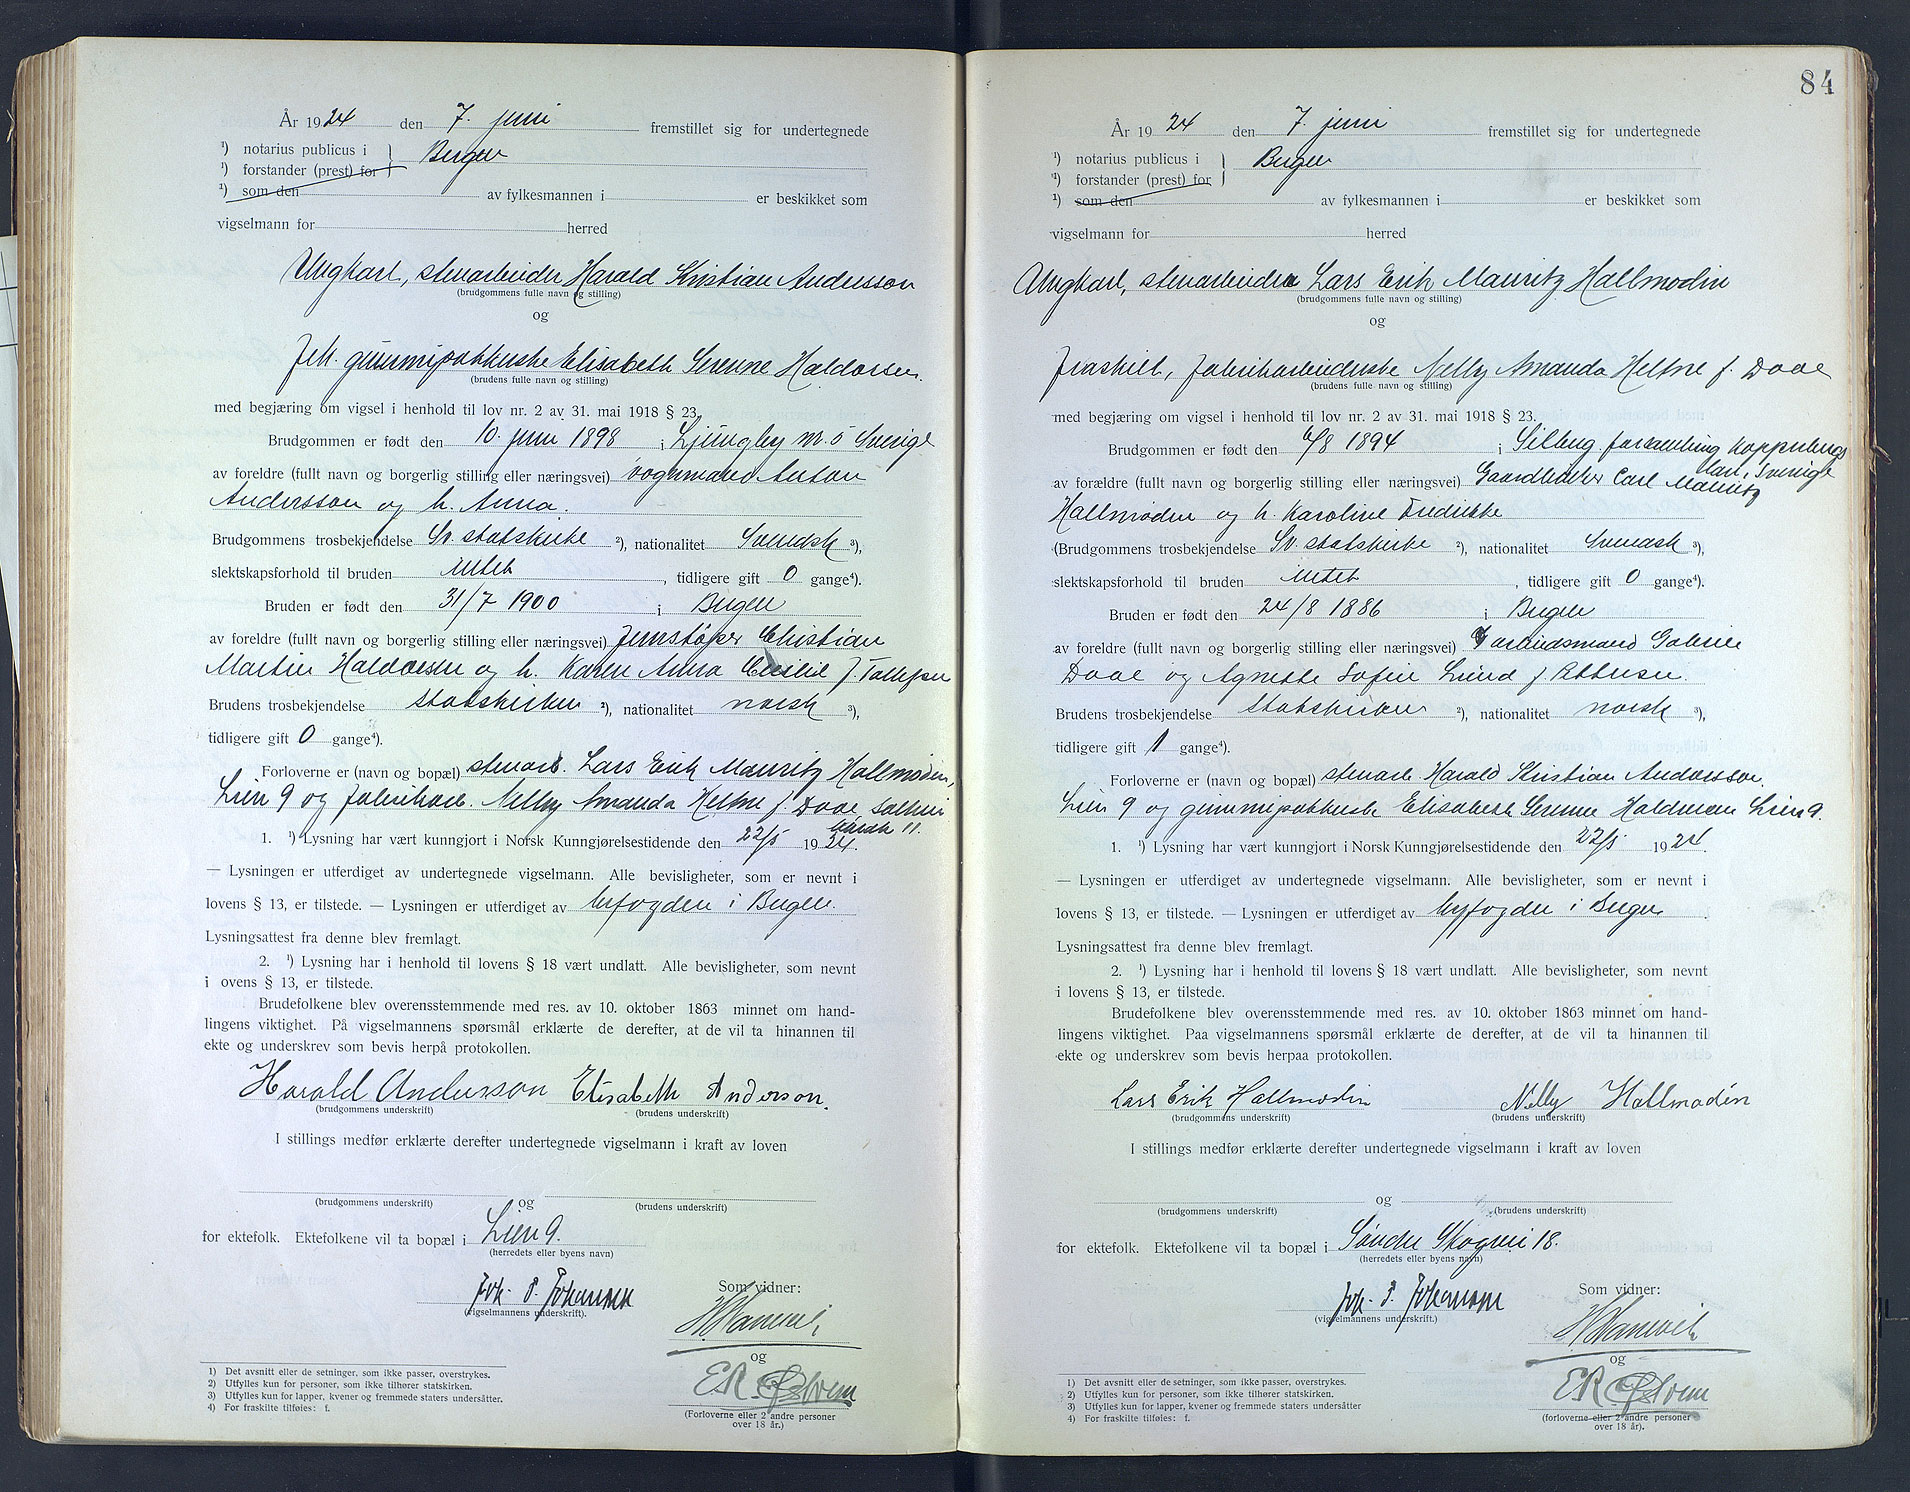 År 1924 den 7. juni fremstillet sig for undertegnede
¹) notarius publicus i } Bergen
¹) forstander (prest) for
¹) som den av fylkesmannen i er beskikket som
vigselmann for herred
Ungkarl, stenarbeider Harald Kristian Andersson
(brudgommens fulle navn og stilling)
og
Frk. gummipakkerske Elisabeth Serenne Haldorsen.
(brudens fulle navn og stilling)
med begjæring om vigsel i henhold til lov nr. 2 av 31. mai 1918 § 23.
Brudgommen er født den 10. juni 1898 i Ljungby Sverige
av foreldre (fullt navn og borgerlig stilling eller næringsvei) vognmand Anton
Andersson og h. Anna.
Brudgommens trosbekjendelse Sv. statskirke ²), nationalitet Svensk ³),
slektskapsforhold til bruden intet, tidligere gift 0 gange⁴).
Bruden er født den 31/7 1900 i Bergen
av foreldre (fullt navn og borgerlig stilling eller næringsvei) Jernstøper Christian
Martin Haldorsen og h. Karen Anna Cecilie f. Tollefsen
Brudens trosbekjendelse Statskirken ²), nationalitet norsk ³),
tidligere gift 0 gange⁴).
Forloverne er (navn og bopæl) stenarb. Lars Erik Mauritz Hallmodin,
Lien 9 og fabrikarb. Nelly Amanda Heltne f. Daae,
1. ¹) Lysning har vært kunngjort i Norsk Kunngjørelsestidende den 22/5 1924.
— Lysningen er utferdiget av undertegnede vigselmann. Alle bevisligheter, som er nevnt i
lovens § 13, er tilstede. — Lysningen er utferdiget av byfogden i Bergen.
Lysningsattest fra denne blev fremlagt.
2. ¹) Lysning har i henhold til lovens § 18 vært undlatt. Alle bevisligheter, som nevnt
i ovens § 13, er tilstede.
Brudefolkene blev overensstemmende med res. av 10. oktober 1863 minnet om hand-
lingens viktighet. På vigselmannens spørsmål erklærte de derefter, at de vil ta hinannen til
ekte og underskrev som bevis herpå protokollen.
Harald Andersson Elisabeth Anderson.
(brudgommens underskrift) (brudens underskrift)
I stillings medfør erklærte derefter undertegnede vigselmann i kraft av loven
og
(brudgommens underskrift) (brudens underskrift)
for ektefolk. Ektefolkene vil ta bopæl i Lien 9.
(herredets eller byens navn)
Joh. P. Johansen Som vidner:
(vigselmannens underskrift).
og
(Forloverne eller 2 andre personer
over 18 år.)
1) Det avsnitt eller de setninger, som ikke passer, overstrykes.
2) Utfylles kun for personer, som ikke tilhører statskirken.
3) Utfylles kun for lapper, kvener og fremmede staters undersåtter.
4) For fraskilte tilføies: f.
84
År 1924 den 7. juni fremstillet sig for undertegnede
¹) notarius publicus i } Bergen
¹) forstander (prest) for
¹) som den av fylkesmannen i er beskikket som
vigselmann for herred
Ungkarl, stenarbeider Lars Erik Mauritz Hallmodin
(brudgommens fulle navn og stilling)
og
Fraskilt, fabrikarbeiderske Nelly Amanda Heltne f. Daae
(brudens fulle navn og stilling)
med begjæring om vigsel i henhold til lov nr. 2 av 31. mai 1918 § 23.
Brudgommen er født den 6/8 1894 i Silberg forsamling Kopparbergs
län i Sverige
av forældre (fullt navn og borgerlig stilling eller næringsvei) Gaardbruker Carl Mauritz
Hallmodin og h. Karoline Fredrikke
(Brudgommens trosbekjendelse Sv. statskirke ²), nationalitet Svensk ³),
slektskapsforhold til bruden intet, tidligere gift 0 gange⁴).
Bruden er født den 24/8 1886 i Bergen
av foreldre (fullt navn og borgerlig stilling eller næringsvei) arbeidsmand Gabriel
Daae og Agnethe Sofie Lund f. Pettersen.
Brudens trosbekjendelse Statskirken ²), nationalitet norsk ³),
tidligere gift 1 gange⁴).
Forloverne er (navn og bopæl) stenarb. Harald Kristian Andersson
Lien 9 og gummipakkerske Elisabeth Serenne Haldorsen Lien 9.
1. ¹) Lysning har vært kunngjort i Norsk Kunngjørelsestidende den 22/5 1924.
— Lysningen er utferdiget av undertegnede vigselmann. Alle bevisligheter, som er nevnt i
lovens § 13, er tilstede. — Lysningen er utferdiget av byfogden i Bergen
Lysningsattest fra denne blev fremlagt.
2. ¹) Lysning har i henhold til lovens § 18 vært undlatt. Alle bevisligheter, som nevnt
i lovens § 13, er tilstede.
Brudefolkene blev overensstemmende med res. av 10. oktober 1863 minnet om hand-
lingens viktighet. Paa vigselmannens spørsmål erklærte de derefter, at de vil ta hinannen til
ekte og underskrev som bevis herpaa protokollen.
Lars Erik Hallmodin Nelly Hallmodin
(brudgommens underskrift) (brudens underskrift)
I stillings medfør erklærte derefter undertegnede vigselmann i kraft av loven
og
(brudgommens underskrift) (brudens underskrift)
for ektefolk. Ektefolkene vil ta bopæl i Søndre Skogvei 18.
(herredets eller byens navn)
Joh. P. Johansen Som vidner:
(vigselmannens underskrift.)
og
(forloverne eller 2 andre personer
over 18 år).
1) Det avsnitt eller de setninger, som ikke passer, overstrykes.
2) Utfylles kun for personer, som ikke tilhører statskirken.
3) Utfylles kun for lapper, kvener og fremmede staters undersåtter
4) For fraskilte tilføies: f.